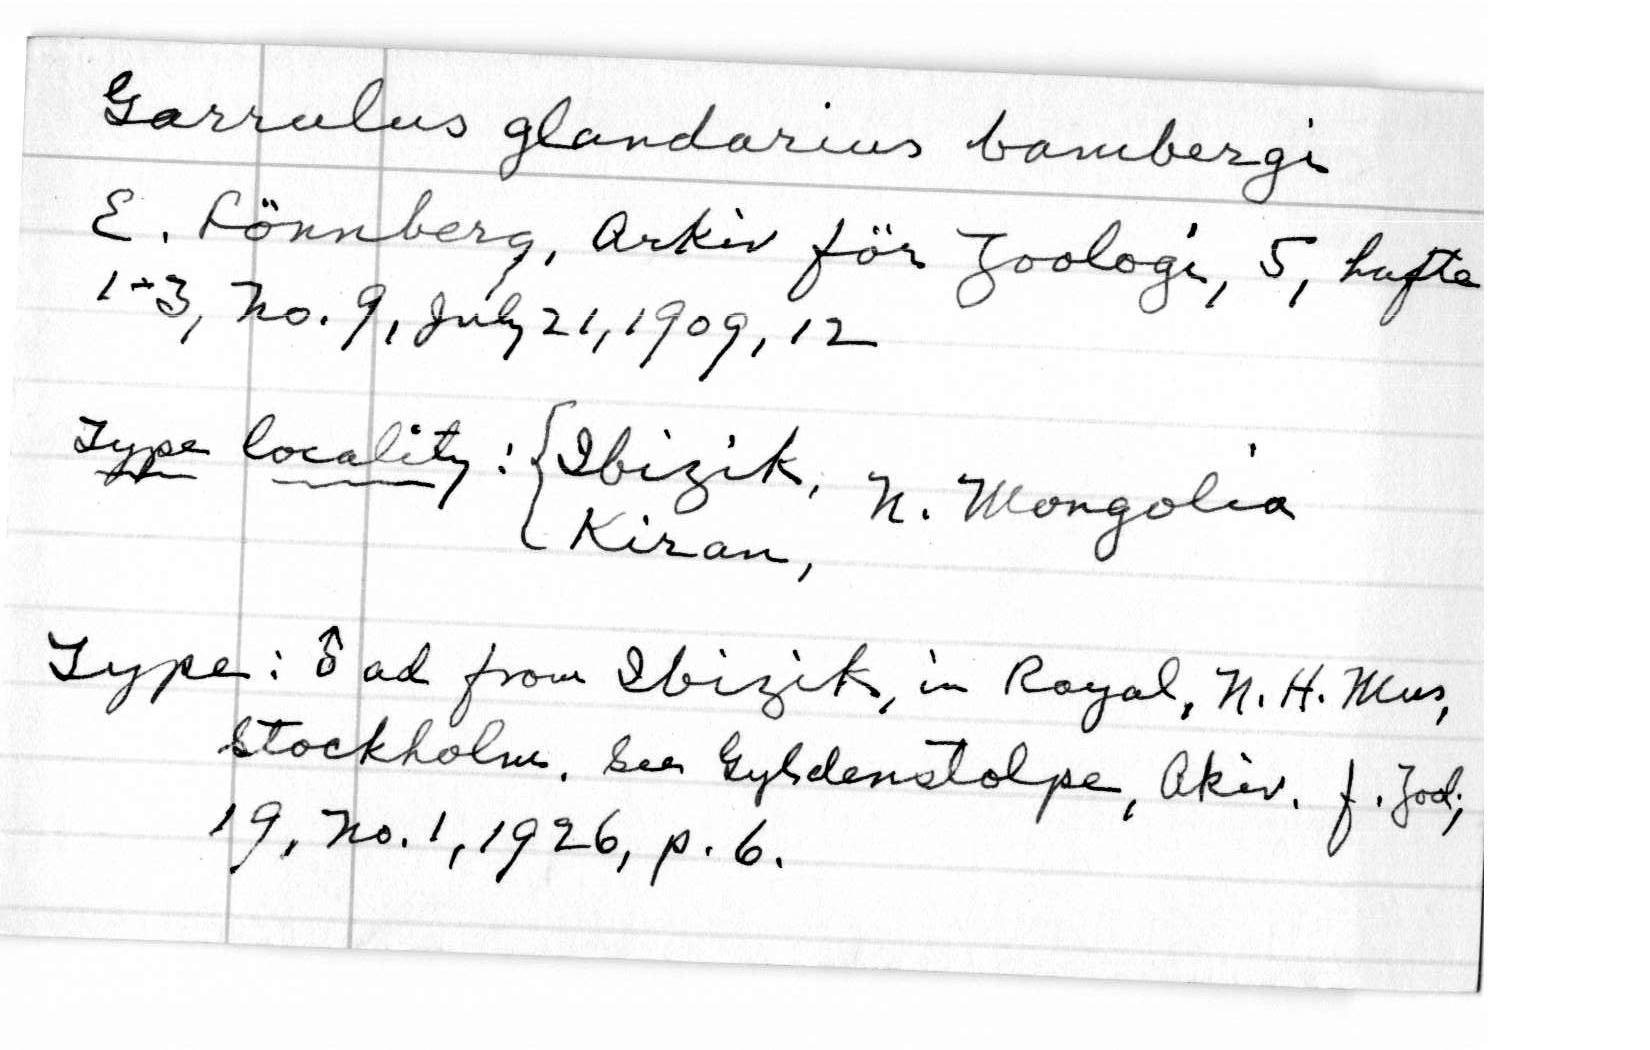 Garrulus glandarius bambergi
E. Lönnberg, Arkiv för Zoologi, 5, hafte
1-3, No. 9, July 21, 1909, 12
Type locality: { Ibizik, N. Mongolia
Kiran,
Type: ♂ ad from Ibizik, in Royal, N. H. Mus,
Stockholm. See Gyldenstolpe, Akiv. f. Zool,
19, No. 1, 1926, p. 6.